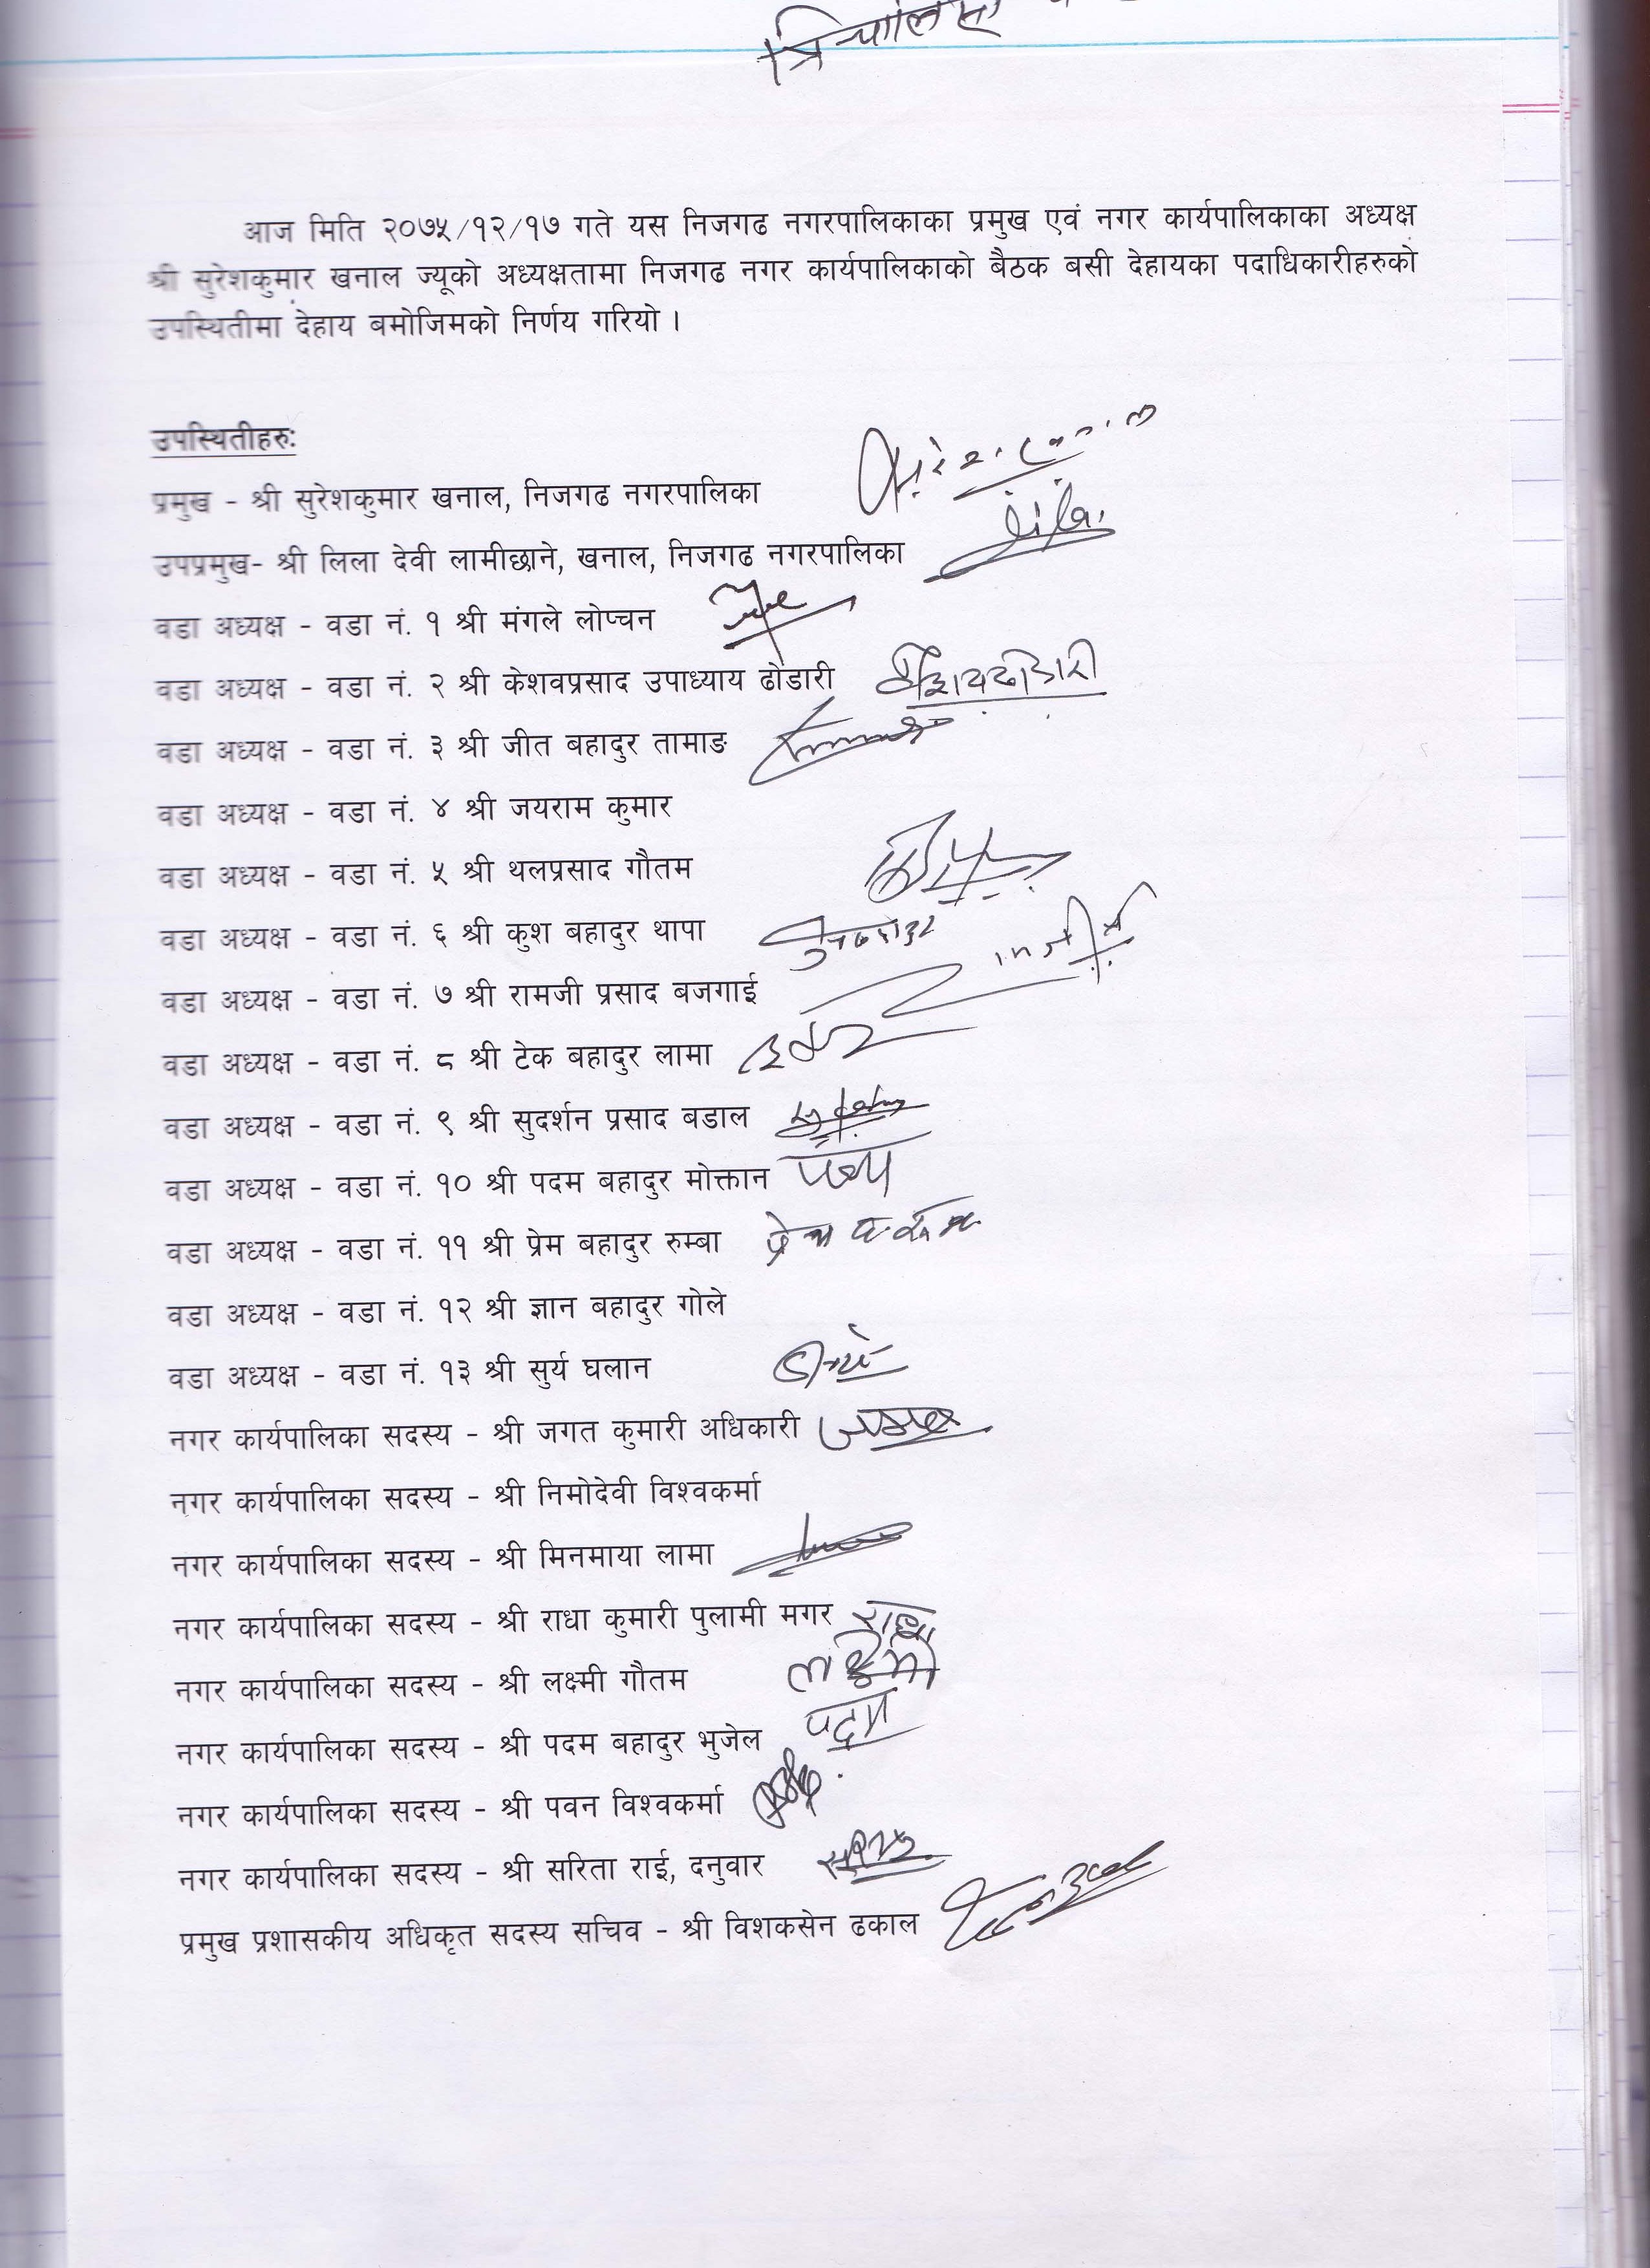 आज मिति २०७५/१२/१७ गते यस निजगढ नगरपालिकाका प्रमुख एवं नगर कार्यपालिकाका अध्यक्ष
श्री सुरेशकुमार खनाल ज्यूको अध्यक्षतामा निजगढ नगर कार्यपालिकाको बैठक बसी देहायका पदाधिकारीहरुको
उपस्थितीमा देहाय बमोजिमको निर्णय गरियो ।
उपस्थितीहरुः
प्रमुख - श्री सुरेशकुमार खनाल, निजगढ नगरपालिका
उपप्रमुख- श्री लिला देवी लामीछाने, खनाल, निजगढ नगरपालिका
वडा अध्यक्ष - वडा नं. १ श्री मंगले लोप्चन
वडा अध्यक्ष - वडा नं. २ श्री केशवप्रसाद उपाध्याय ढोंडारी
वडा अध्यक्ष - वडा नं. ३ श्री जीत बहादुर तामाङ
वडा अध्यक्ष - वडा नं. ४ श्री जयराम कुमार
वडा अध्यक्ष - वडा नं. ५ श्री थलप्रसाद गौतम
वडा अध्यक्ष - वडा नं. ६ श्री कुश बहादुर थापा
वडा अध्यक्ष - वडा नं. ७ श्री रामजी प्रसाद बजगाई
वडा अध्यक्ष - वडा नं. ८ श्री टेक बहादुर लामा
वडा अध्यक्ष - वडा नं. ९ श्री सुदर्शन प्रसाद बडाल
वडा अध्यक्ष - वडा नं. १० श्री पदम बहादुर मोक्तान
वडा अध्यक्ष - वडा नं. ११ श्री प्रेम बहादुर रुम्बा
वडा अध्यक्ष - वडा नं. १२ श्री ज्ञान बहादुर गोले
वडा अध्यक्ष - वडा नं. १३ श्री सुर्य घलान
नगर कार्यपालिका सदस्य - श्री जगत कुमारी अधिकारी
नगर कार्यपालिका सदस्य - श्री निमोदेवी विश्वकर्मा
नगर कार्यपालिका सदस्य - श्री मिनमाया लामा
नगर कार्यपालिका सदस्य - श्री राधा कुमारी पुलामी मगर राधा
नगर कार्यपालिका सदस्य - श्री लक्ष्मी गौतम लक्ष्मी
नगर कार्यपालिका सदस्य - श्री पदम बहादुर भुजेल पदम
नगर कार्यपालिका सदस्य - श्री पवन विश्वकर्मा
नगर कार्यपालिका सदस्य - श्री सरिता राई, दनुवार
प्रमुख प्रशासकीय अधिकृत सदस्य सचिव - श्री विशकसेन ढकाल